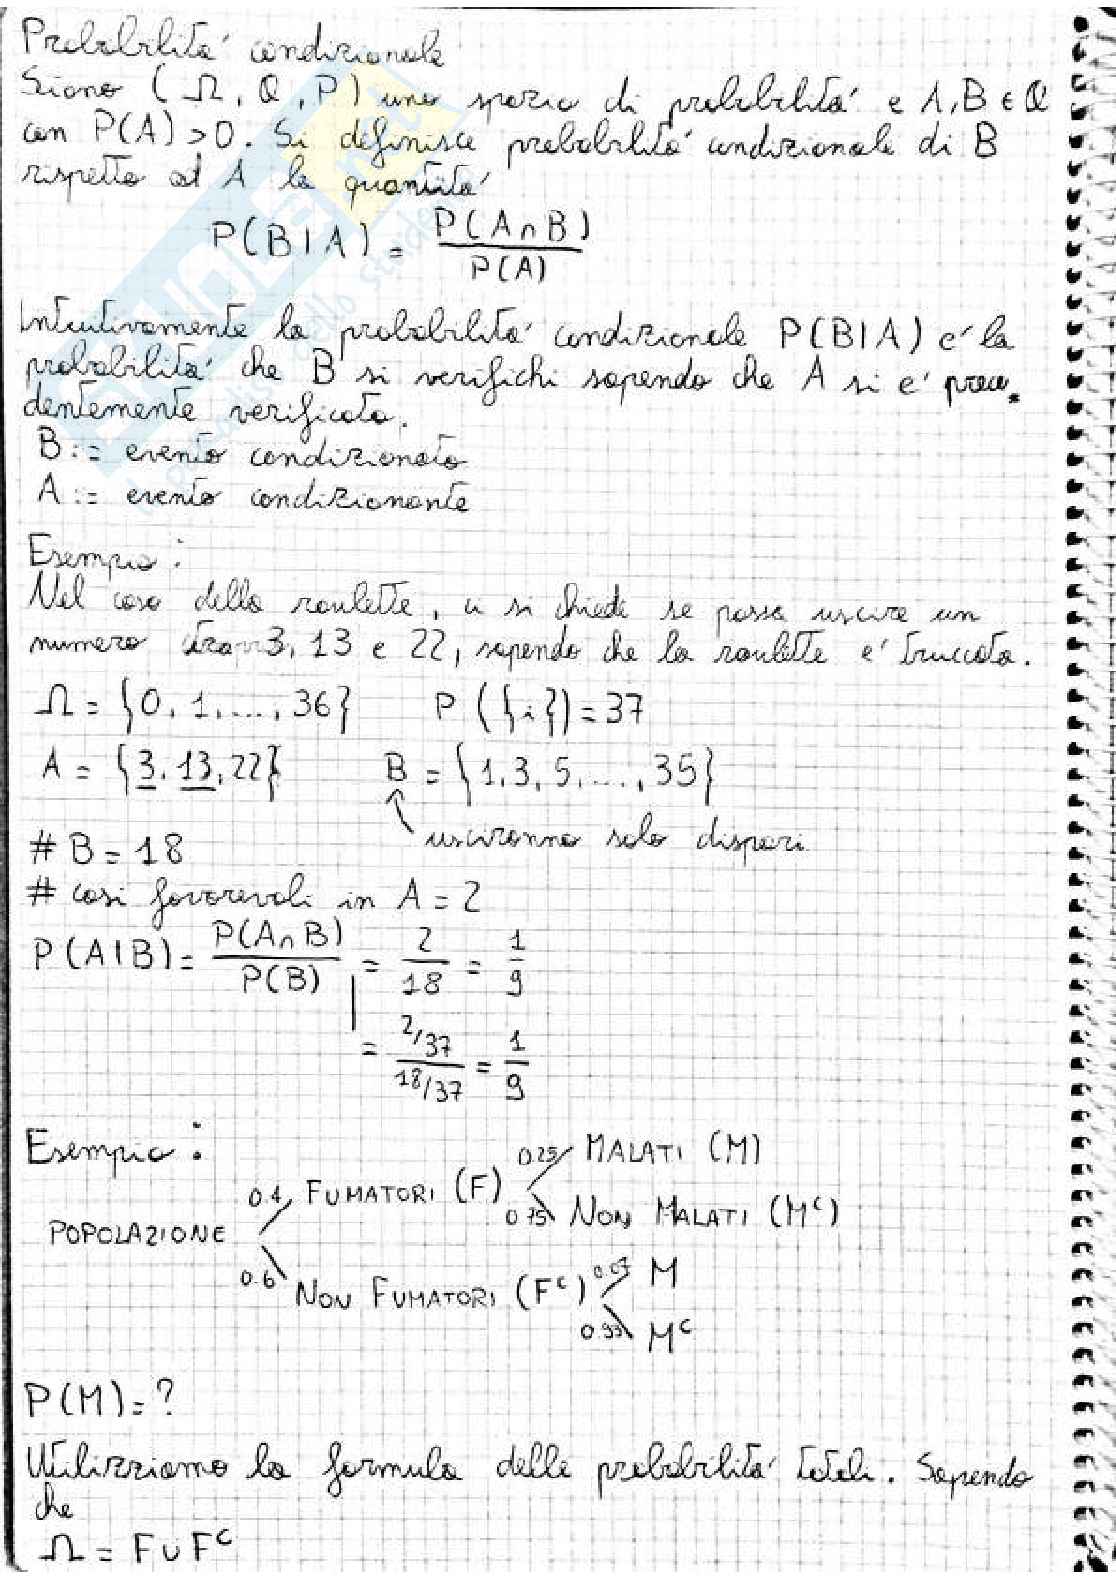 Probabilità condizionale
Siano (Ω, Q, P) uno spazio di probabilità e A, B ∈ Q
con P(A) > 0. Si definisce probabilità condizionale di B
rispetto ad A la quantità
P(B|A) = P(A∩B) / P(A)
Intuitivamente la probabilità condizionale P(B|A) e' la
probabilità che B si verifichi sapendo che A si e' prece-
dentemente verificato.
B := evento condizionato
A := evento condizionante
Esempio:
Nel caso della roulette, ci si chiede se possa uscire un
numero tra 3, 13 e 22, sapendo che la roulette e' truccata.
Ω = {0, 1, ..., 36} P({i}) = 37
A = {3, 13, 22} B = {1, 3, 5, ..., 35}
usciranno solo dispari
# B = 18
# casi favorevoli in A = 2
P(A|B) = P(A∩B) / P(B) = 2/18 = 1/9
= (2/37) / (18/37) = 1/9
Esempio:
0.25 MALATI (M)
0.4 FUMATORI (F)
0.75 NON MALATI (Mᶜ)
POPOLAZIONE
0.6 NON FUMATORI (Fᶜ) 0.07 M
0.93 Mᶜ
P(M) = ?
Utilizziamo la formula delle probabilità totali. Sapendo
che
Ω = F ∪ Fᶜ